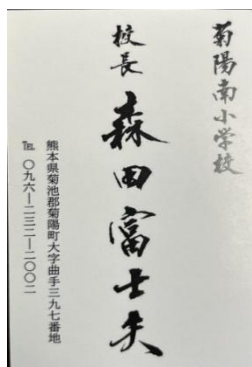 菊陽南小学校
校長 森田富士夫
熊本県菊池郡菊陽町大字曲手三九七番地
℡ 〇九六ー二三二ー二〇〇二